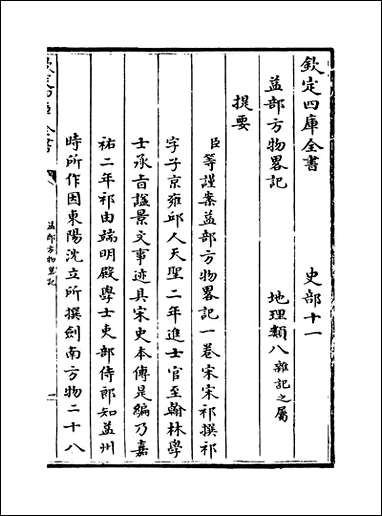 欽定四庫全書　史部十一
益部方物畧記　地理類八雜記之屬
提要
臣等謹案益部方物畧記一卷宋宋祁撰祁
字子京雍邱人天聖二年進士官至翰林學
士承旨諡景文事迹具宋史本傳是編乃嘉
祐二年祁由端明殿學士吏部侍郎知益州
時所作因東陽沈立所撰劍南方物二十八
益部方物畧記
一